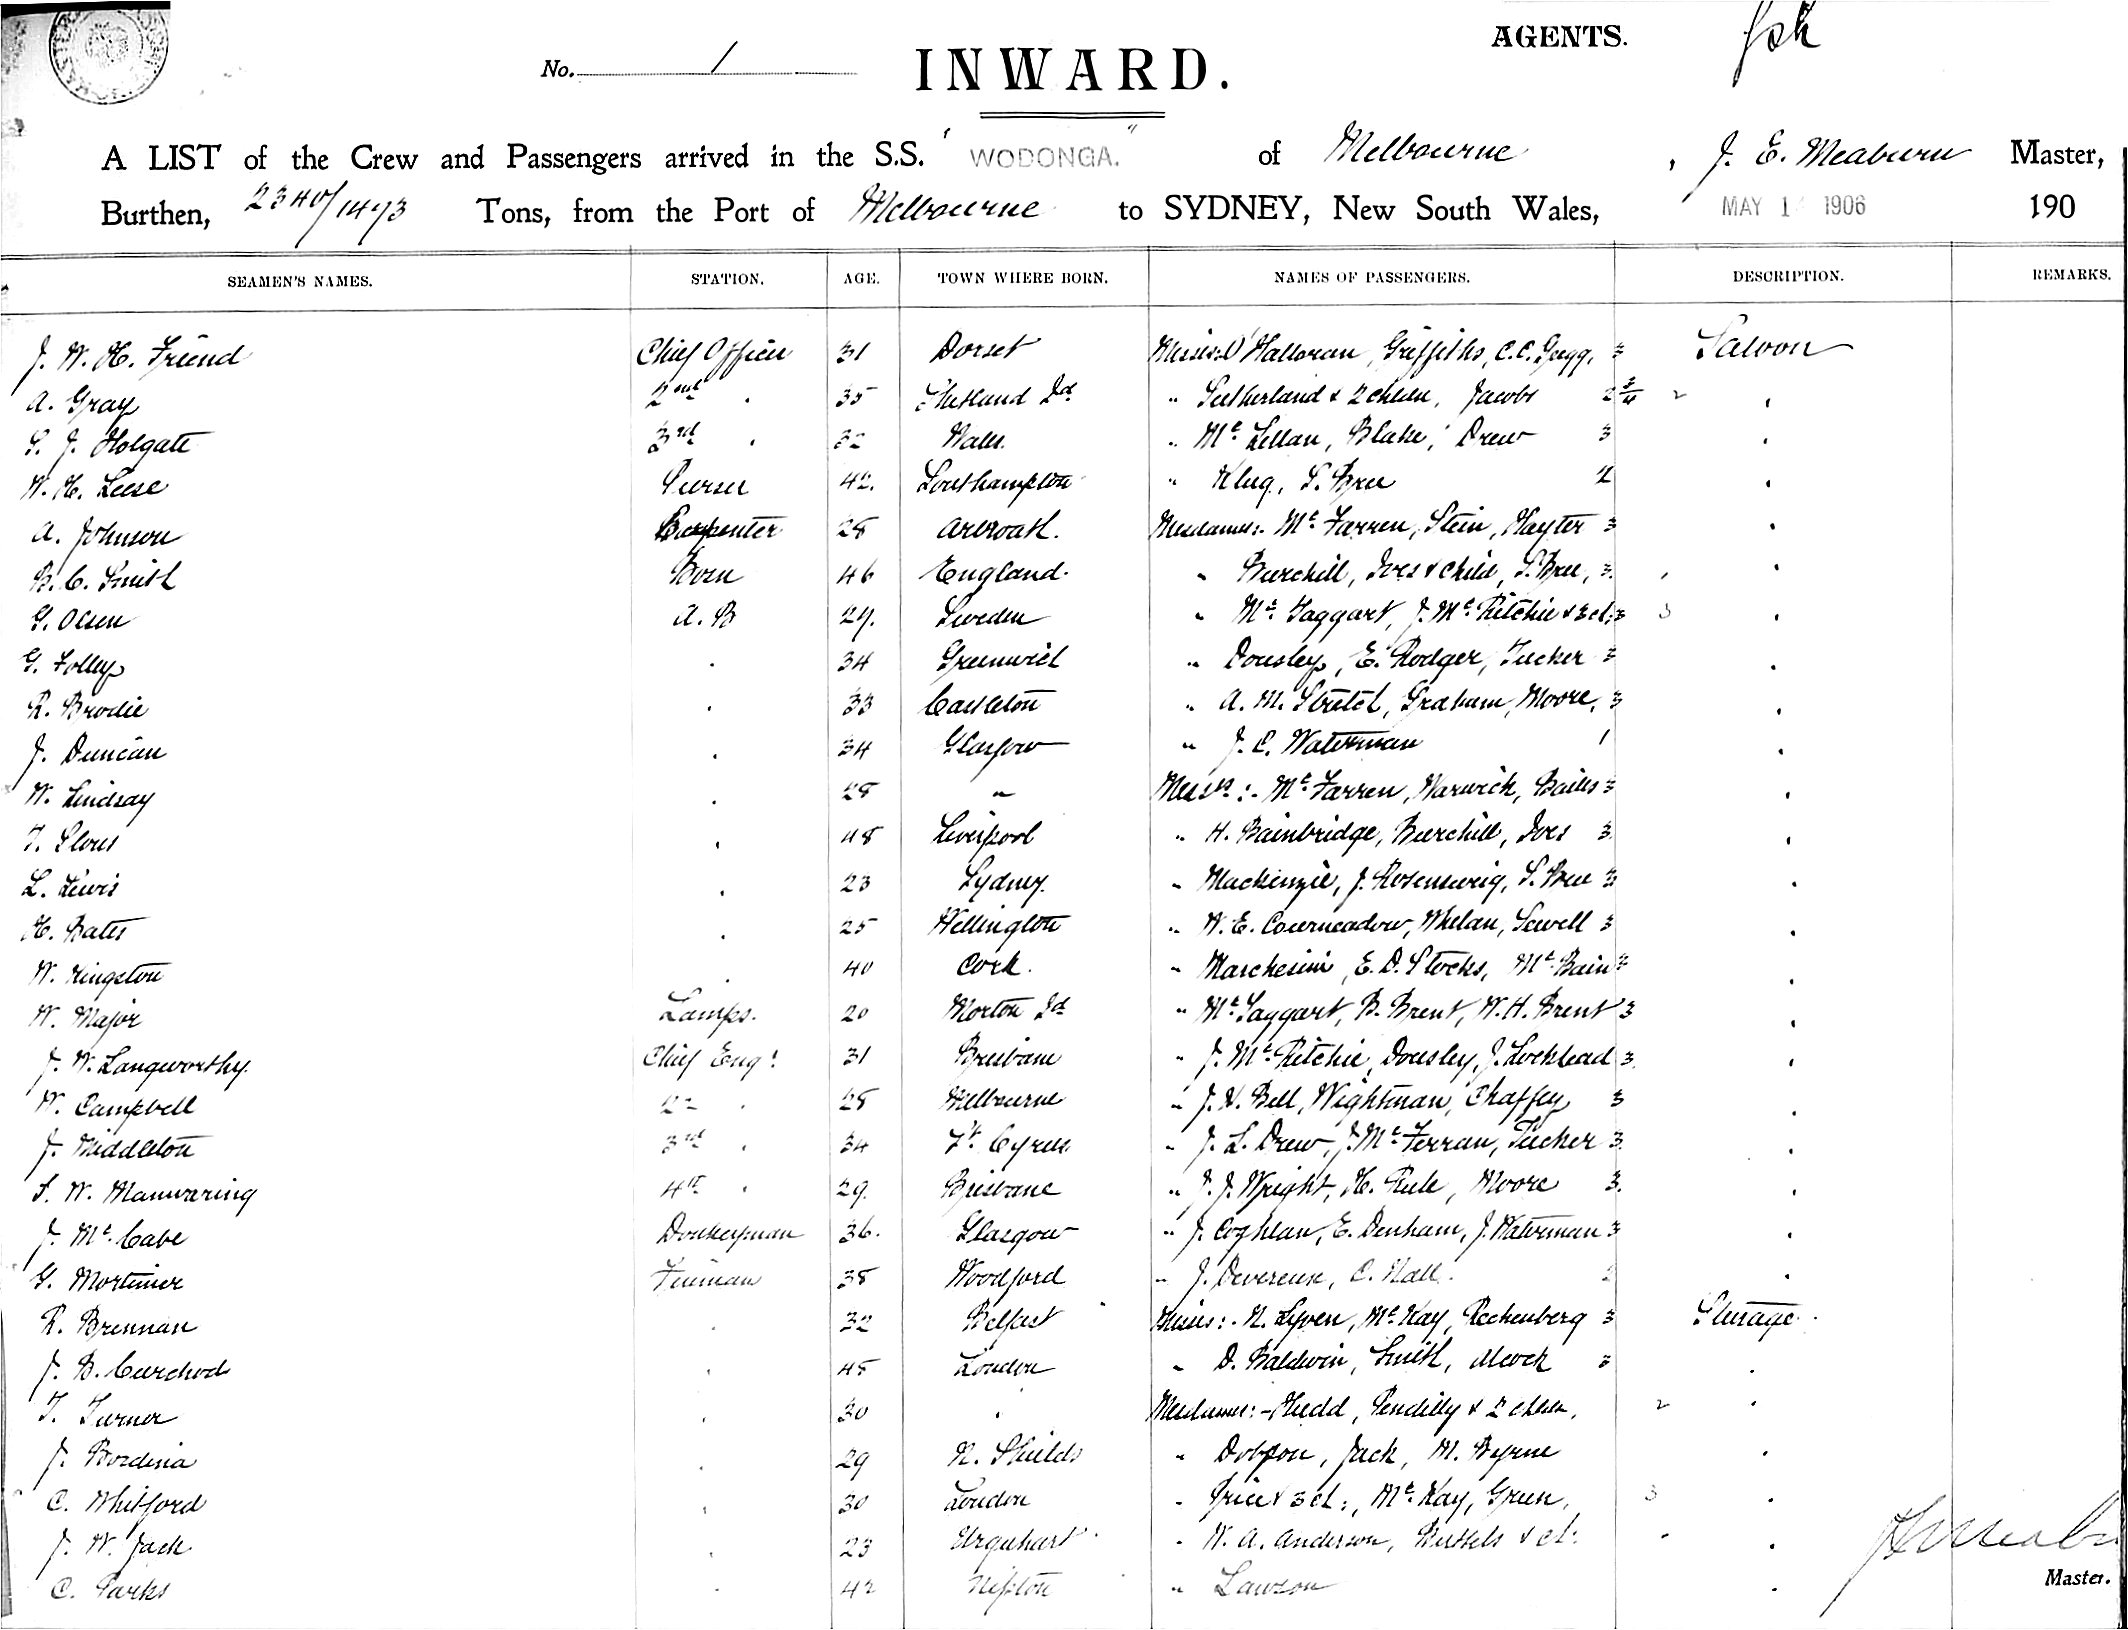 AGENTS.
No. 1
INWARD.
A LIST of the Crew and Passengers arrived in the S.S. "WODONGA." of Melbourne, J. E. Meaburn Master,
Burthen, 2340/1473 Tons, from the Port of Melbourne to SYDNEY, New South Wales, MAY 1 1906 190
SEAMEN'S NAMES. STATION. AGE. TOWN WHERE BORN. NAMES OF PASSENGERS. DESCRIPTION. REMARKS.
J. W. H. Friend Chief Officer 31 Dorset Misses: O'Halloran, Griffiths, C.C. Gregg, 3 Saloon
A. Gray 2nd " 35 Shetland Id " Sutherland & 2 chldn, Jacobs 2 2 "
S. J. Holgate 3rd " 32 Wales. " Mc Lellan, Blake, Drew 3 "
W. H. Leese Purser 42. Southampton " Klug, S. Bree 2 "
A. Johnson Carpenter 28 Arbroath. Mesdames:- Mc Farren, Stein, Hayter 3 "
B. C. Smith Bosn 46 England. " Burchill, Ives & child, S. Bree, 3. "
G. Olsen A. B 29. Sweden " Mc Taggart, J. Mc Ritchie & 3 ch: 3 3 "
G. Folley " 34 Greenwich " Dousley, E. Rodger, Tucker 3 "
R. Brodie " 33 Castleton " A. M. Stretch, Graham, Moore, 3 "
J. Duncan " 34 Glasgow " J. C. Waterman 1 "
W. Lindsay " 28 " Messrs:- Mc Farren, Warwick, Bailes 3 "
T. Slous " 48 Liverpool " H. Bainbridge, Burchill, Ives 3 "
L. Lewis " 23 Sydney. " Mackenzie, J. Rosensweig, S. Bree 3 "
H. Bates " 25 Wellington " W. E. Courneadow, Whelan, Sewell 3 "
W. Kingston " 40 Cork. " Marchesini, E. D. Stocks, Mc Bain 3 "
W. Major Lamps. 20 Morton Id " Mc Taggart, B. Brent, W. H. Brent 3 "
J. W. Langworthy. Chief Engr 31 Brisbane " J. Mc Ritchie, Dousley, J. Lockhead 3. "
W. Campbell 2nd " 28 Melbourne " J. H. Bell, Wightman, Chaffey 3 "
J. Middleton 3rd " 34 St. Cyrus. " J. L. Drew, J. Mc Ferran, Tucker 3. "
S. W. Manwaring 4th " 29. Brisbane " J. J. Wright, H. Rule, Moore 3. "
J. Mc Cabe Donkeyman 36. Glasgow " J. Coghlan, E. Denham, J. Waterman 3 "
G. Mortimer Fireman 38 Woodford " J. Devereux, C. Hall. 2 "
R. Brennan " 32 Belfast Misses:- N. Lyven, Mc Kay, Rechenberg 3 Steerage.
J. B. Curchod " 45 London " D. Baldwin, Smith, Mock 3 "
T. Turner " 30 " Mesdames:- Rudd, Pendilly & 2 chldn, 2 "
J. Bordina " 29 N. Shields " Dobson, Jack, M. Byrne "
C. Whitford " 30 London " Price & 3 ch:, Mc Kay, Green, 3 "
J. W. Jack " 23 Urquhart " W. A. Anderson, Russels & ch: "
C. Parks " 42 " Lawson "
Master.